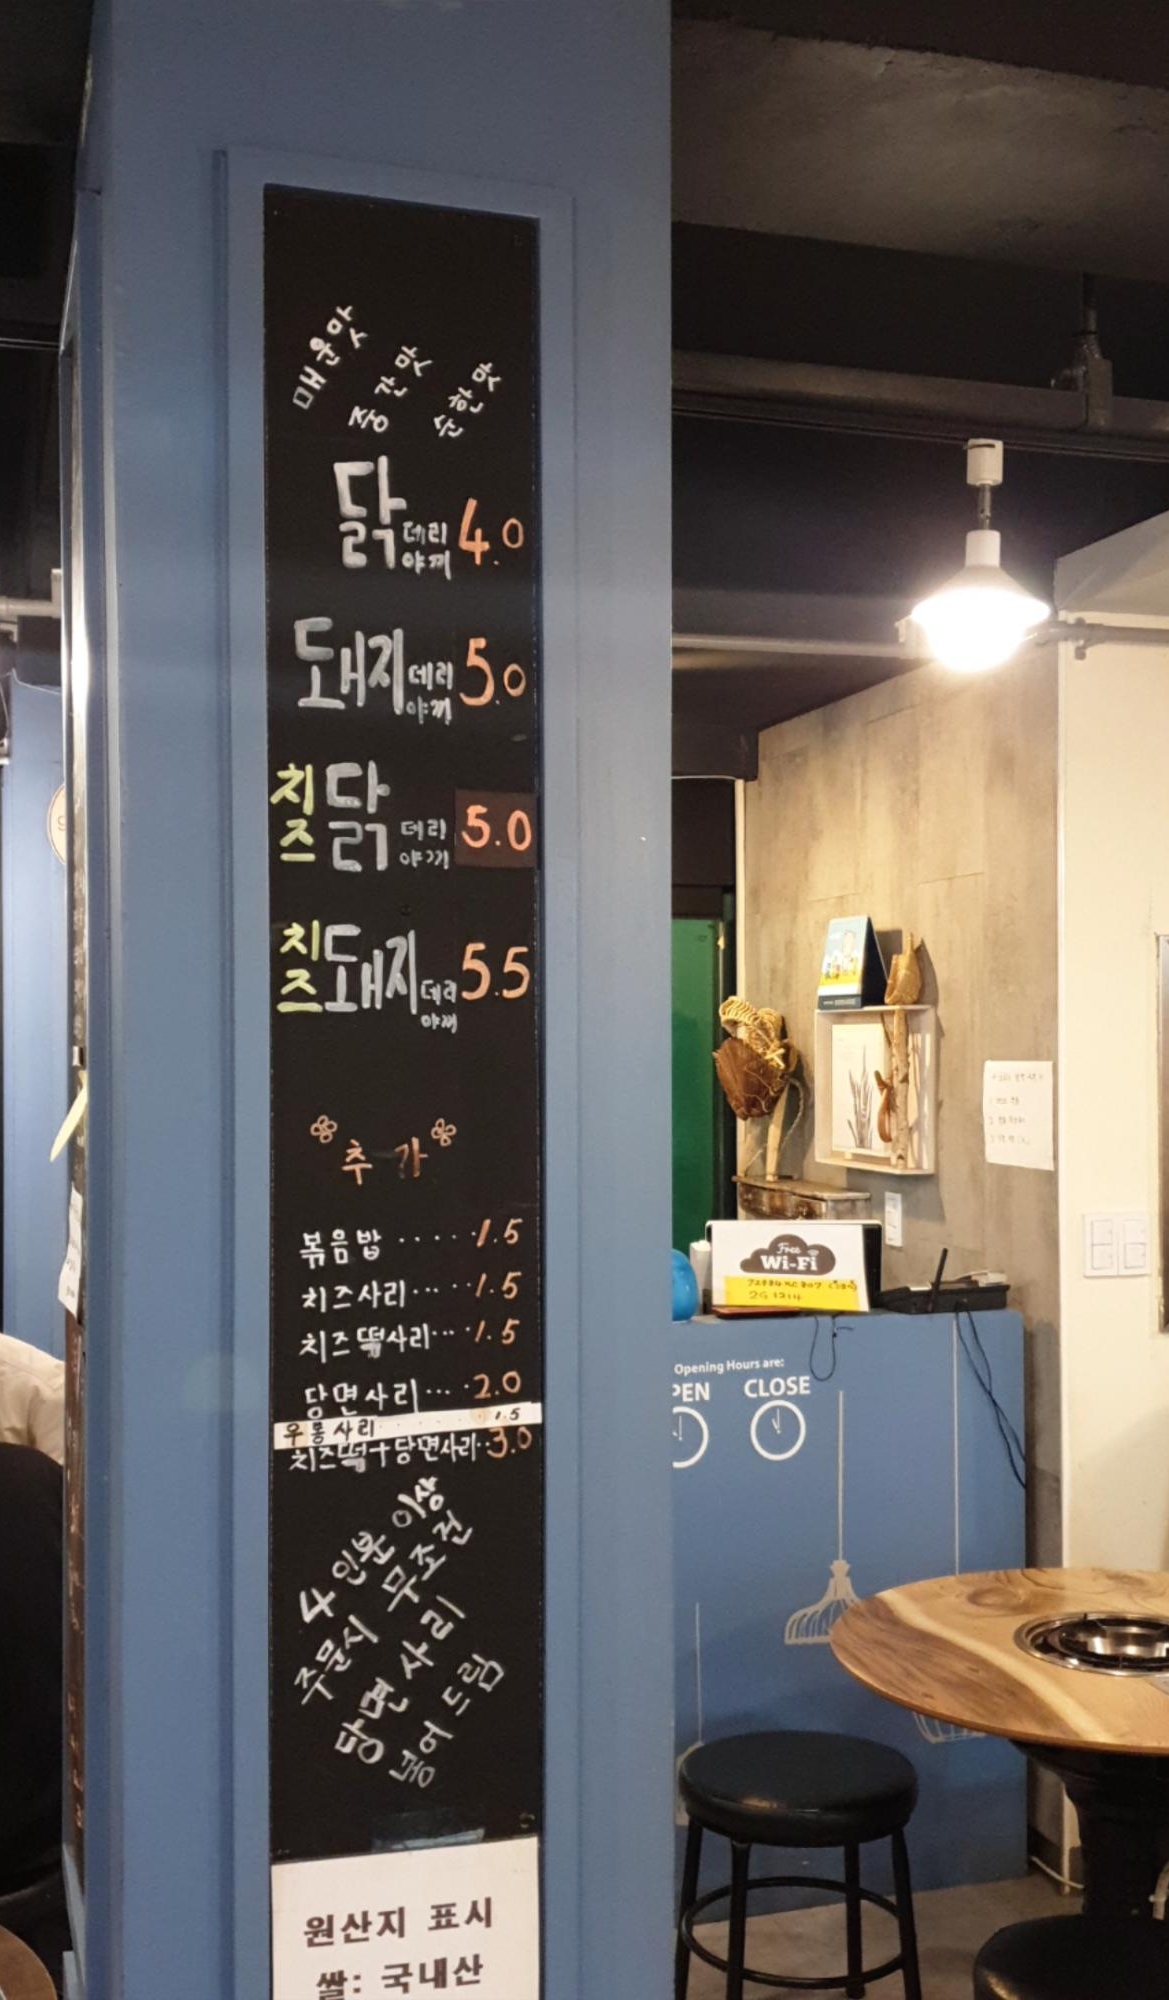 매운맛
중간맛
순한맛
닭 데리야끼 4.0
돼지 데리야끼 5.0
치즈 닭 데리야끼 5.0
치즈 돼지 데리야끼 5.5
추가
볶음밥 ····· 1.5
치즈사리 ····· 1.5
치즈떡사리 ···· 1.5
당면사리 ···· 2.0
우동사리 ···· 1.5
치즈떡+당면사리 ·· 3.0
4인분 이상
주문시 무조건
당면 사리
넣어 드림
원산지 표시
쌀: 국내산
Free
Wi-Fi
Opening Hours are:
PEN CLOSE